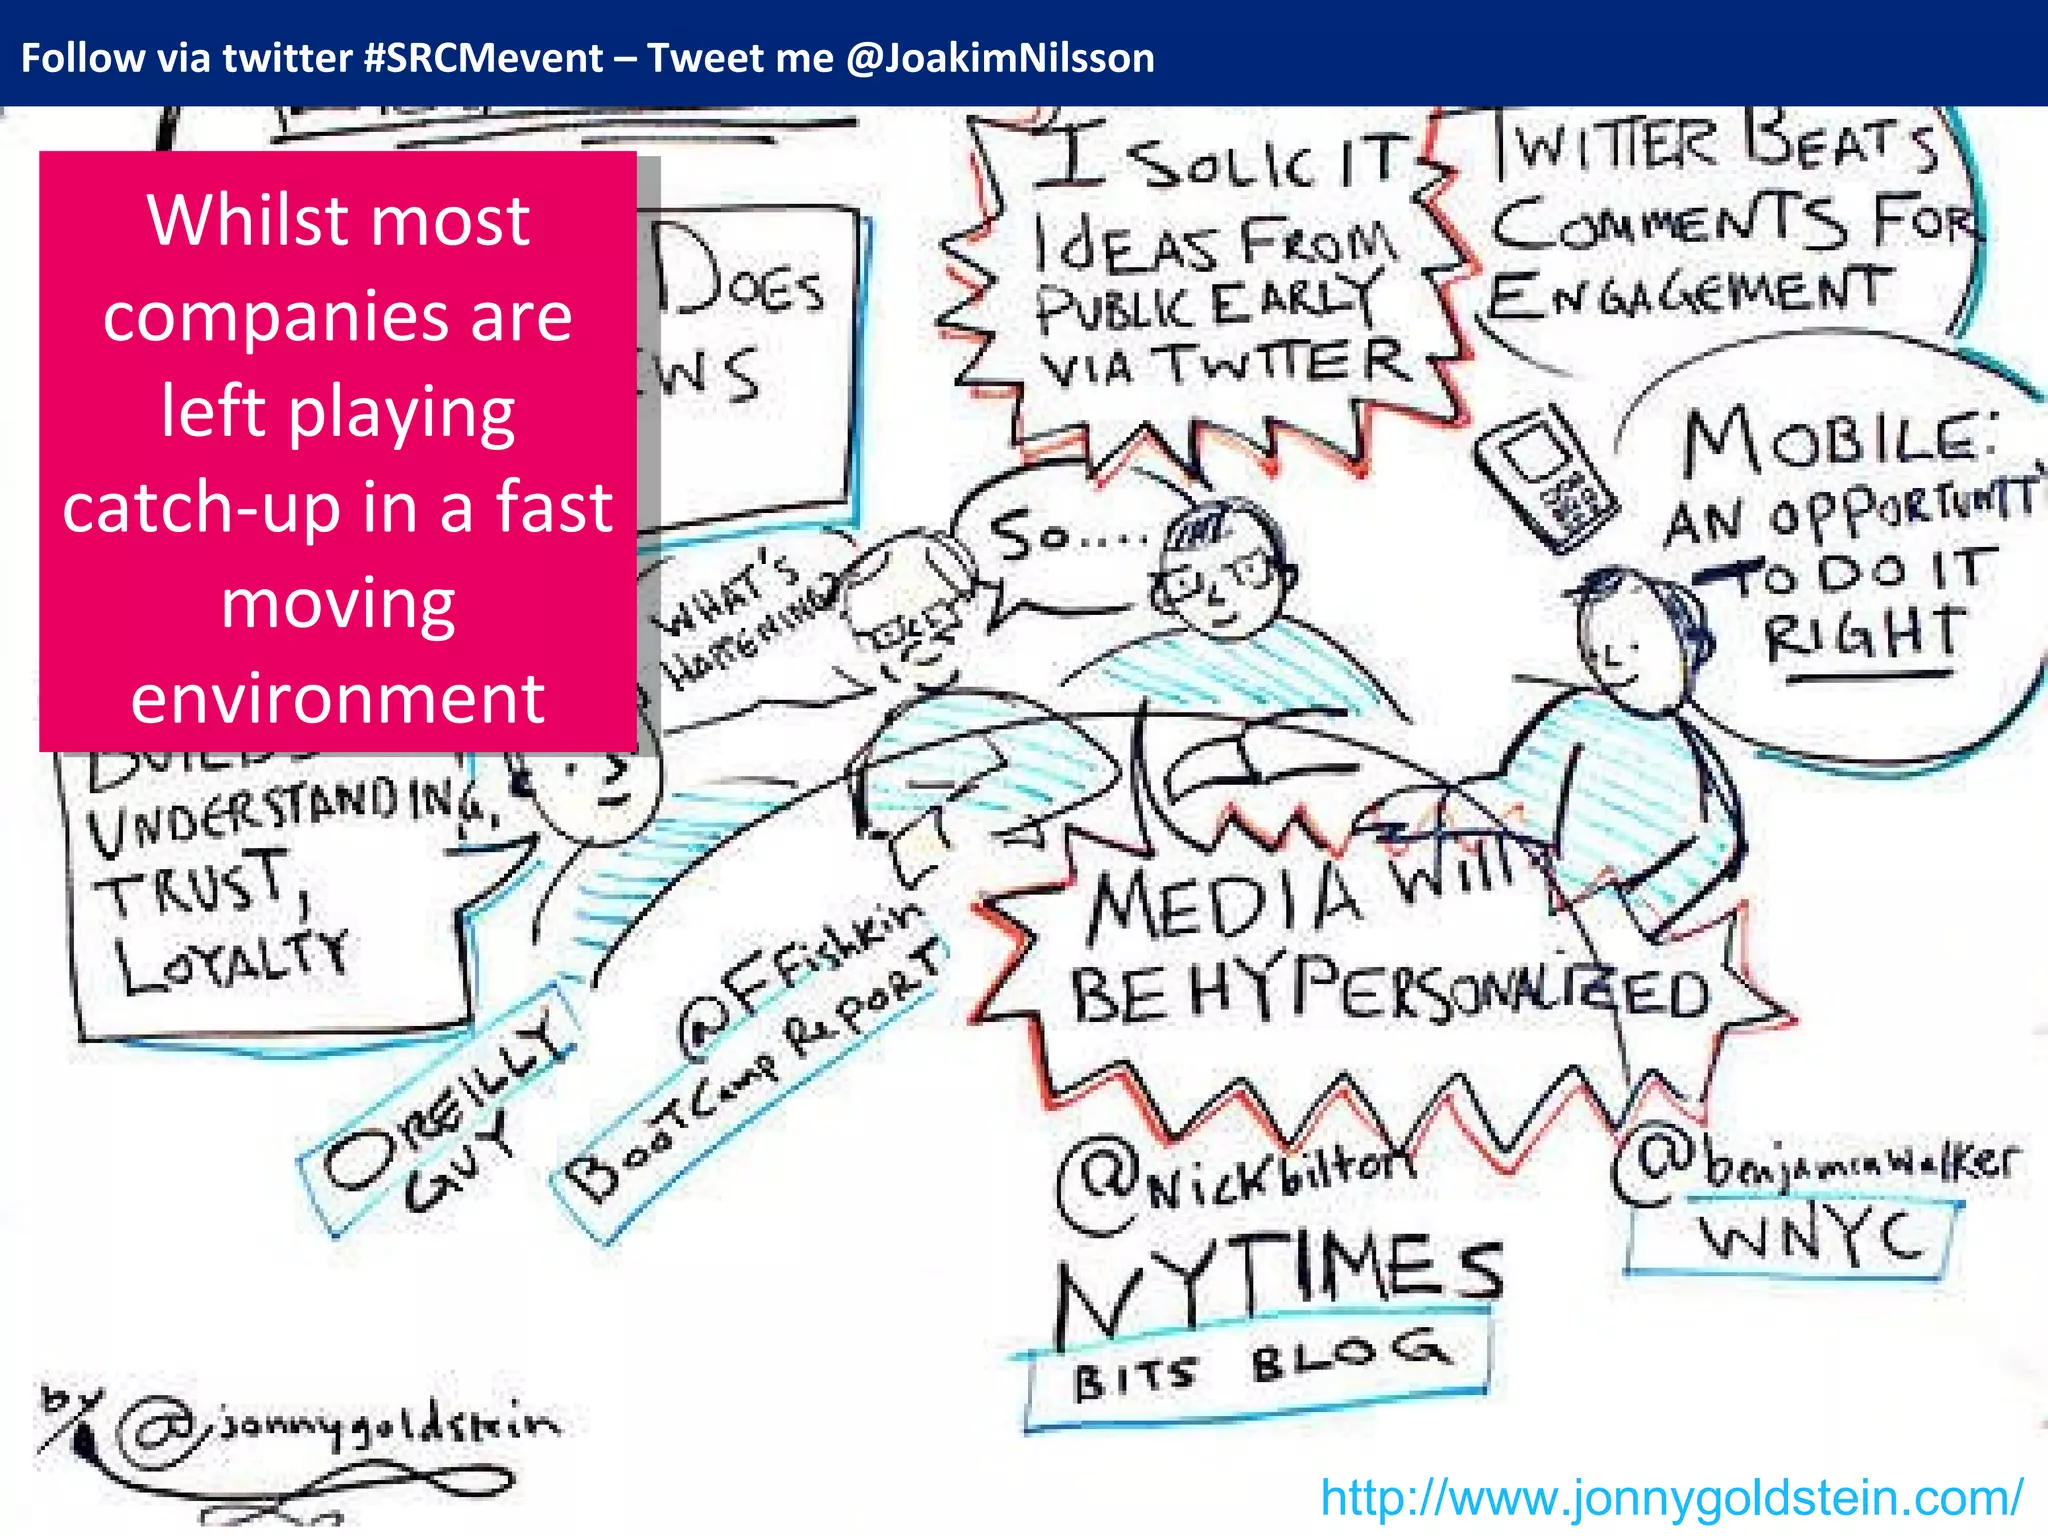 Follow via twitter #SRCMevent – Tweet me @JoakimNilsson
Whilst most
companies are
left playing
catch-up in a fast
moving
environment
DOES
I SOLICIT
IDEAS FROM
PUBLIC EARLY
VIA TWTTER
TWITTER BEATS
COMMENTS FOR
ENGAGEMENT
MOBILE:
AN OPPORTUNITY
TO DO IT
RIGHT
WHAT'S
HAPPENING
So....
BUILDS
UNDERSTANDING,
TRUST,
LOYALTY
MEDIA Will
BE HYPERSONALIZED
OREILLY
GUY
@FFishkin
BOOTCAMP REPORT
@Nickbilton
NYTIMES
BITS BLOG
@benjaminwalker
WNYC
by
@jonnygoldstein
http://www.jonnygoldstein.com/